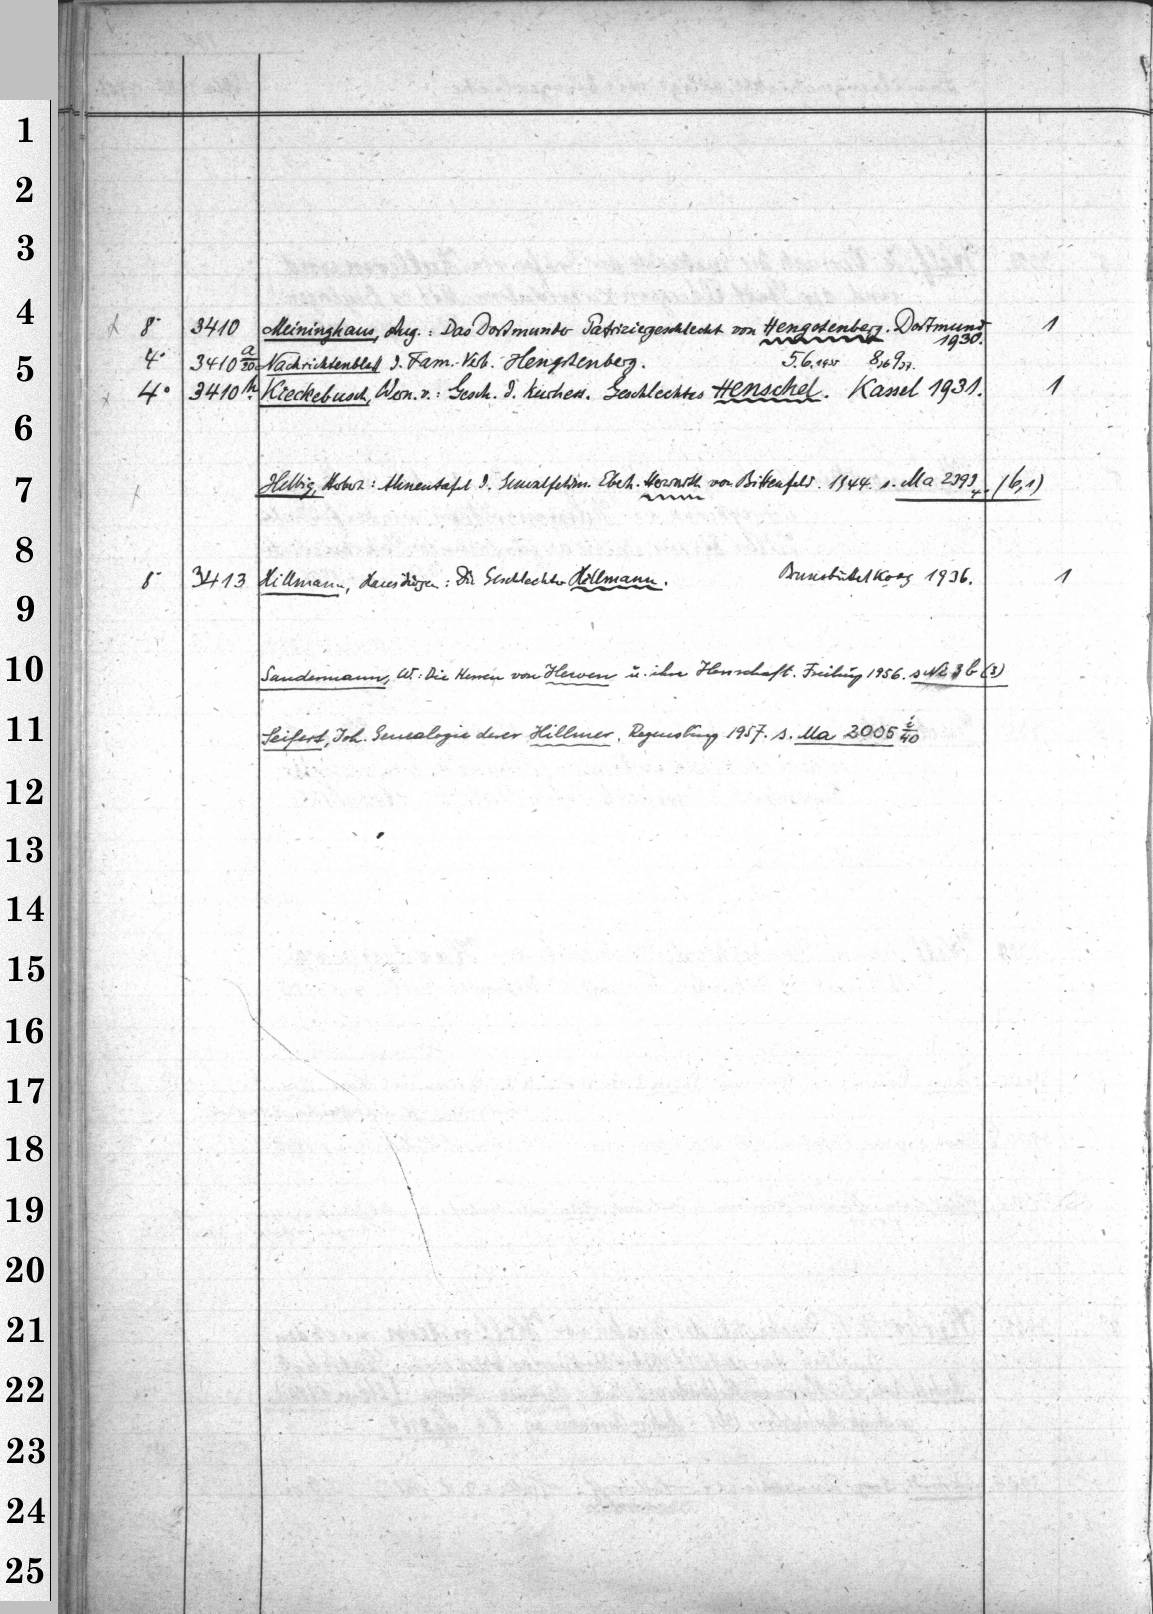 1
2
3
4
8° 3410 Meininghaus, Aug.: Das Dortmunder Patriziergeschlecht von Hengstenberg. Dortmund 1930. 1
5
4° 3410 a/20 Nachrichtenblatt d. Fam.-Verb. Hengstenberg. 5.6.1935 8,36 9,37.
4° 3410 h Kieckebusch, Wern. v.: Gesch. d. kurhess. Geschlechtes Henschel. Kassel 1931. 1
6
7
Helbig, Robert: Ahnentafel d. Genralfeldm. Eberh. Herwarth von Bittenfeld. 1944. s. Ma 2393 (6,1)
8
8° 3413 Hillmann, Hans Jürgen: Die Geschlechter Hillmann. Brunsbüttelkoog 1936. 1
9
10
Sandermann, W.: Die Herren von Hewen u. ihre Herrschaft. Freiburg 1956. s. 3 b (3)
11
Seifert, Joh. Genealogie derer Hillmer. Regensburg 1957. s. Ma 2005 i/40
12
13
14
15
16
17
18
19
20
21
22
23
24
25